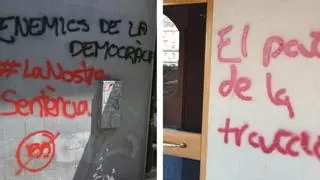 ENEMICS DE LA
DEMOCRÀCIA
#LaNostra
Sentència
155
El pati
de la